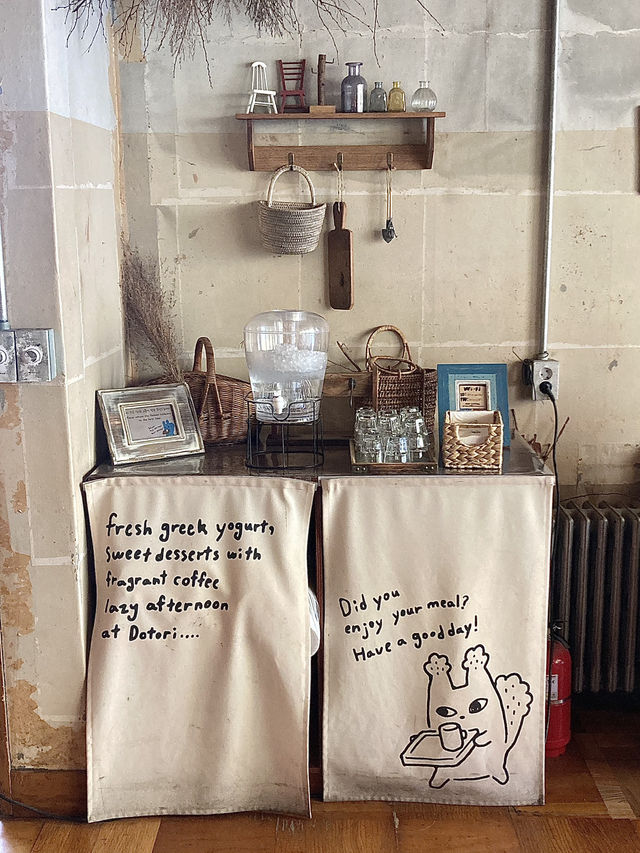 fresh greek yogurt,
Sweet desserts with
fragrant coffee
lazy afternoon
at Dotori....
Did you
enjoy your meal?
Have a good day!
Wi-Fi